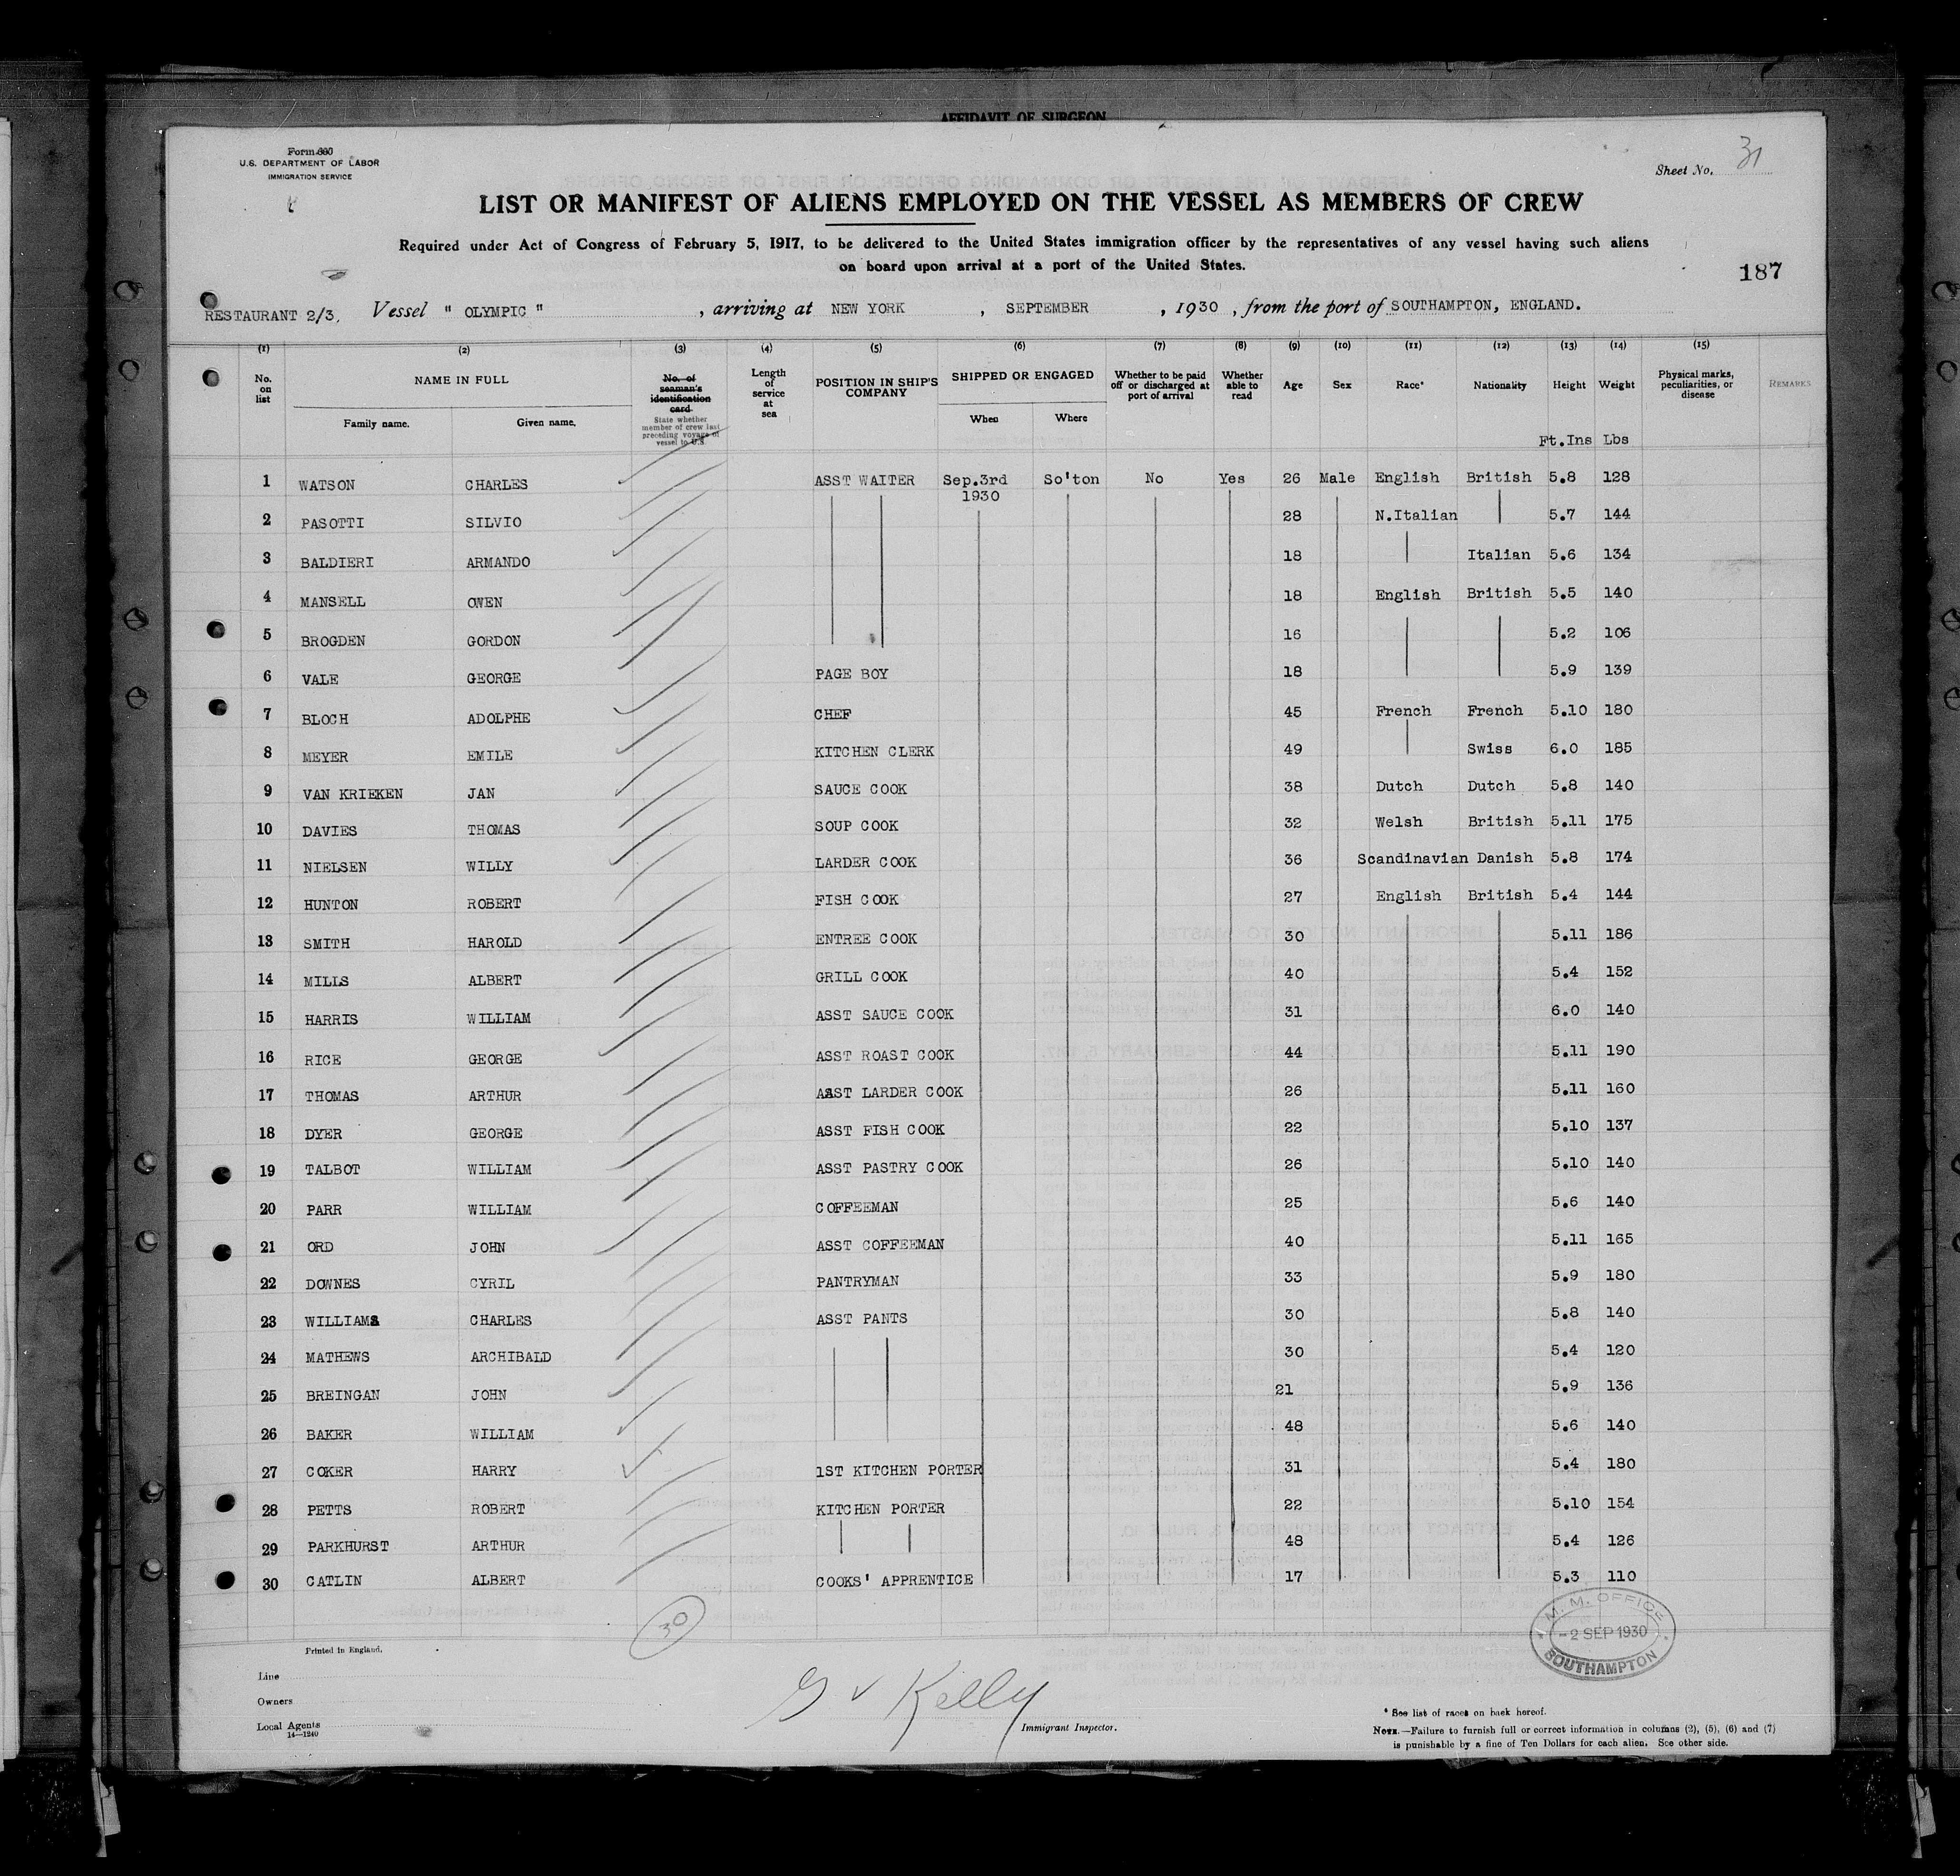 AFFIDAVIT OF SURGEON
Form 680
U.S. DEPARTMENT OF LABOR
IMMIGRATION SERVICE
Sheet No. 31
LIST OR MANIFEST OF ALIENS EMPLOYED ON THE VESSEL AS MEMBERS OF CREW
Required under Act of Congress of February 5, 1917, to be delivered to the United States immigration officer by the representatives of any vessel having such aliens
on board upon arrival at a port of the United States.
187
RESTAURANT 2/3. Vessel " OLYMPIC " , arriving at NEW YORK , SEPTEMBER , 1930 , from the port of SOUTHAMPTON, ENGLAND.
(1) (2) (3) (4) (5) (6) (7) (8) (9) (10) (11) (12) (13) (14) (15)
No. on list NAME IN FULL Family name. Given name. No. of seaman's identification card State whether member of crew last preceding voyage of vessel to U.S. Length of service at sea POSITION IN SHIP'S COMPANY SHIPPED OR ENGAGED When Where Whether to be paid off or discharged at port of arrival Whether able to read Age Sex Race* Nationality Height Weight Physical marks, peculiarities, or disease REMARKS
Ft.Ins Lbs
1 WATSON CHARLES ASST WAITER Sep.3rd 1930 So'ton No Yes 26 Male English British 5.8 128
2 PASOTTI SILVIO 28 N.Italian 5.7 144
3 BALDIERI ARMANDO 18 Italian 5.6 134
4 MANSELL OWEN 18 English British 5.5 140
5 BROGDEN GORDON 16 5.2 106
6 VALE GEORGE PAGE BOY 18 5.9 139
7 BLOCH ADOLPHE CHEF 45 French French 5.10 180
8 MEYER EMILE KITCHEN CLERK 49 Swiss 6.0 185
9 VAN KRIEKEN JAN SAUCE COOK 38 Dutch Dutch 5.8 140
10 DAVIES THOMAS SOUP COOK 32 Welsh British 5.11 175
11 NIELSEN WILLY LARDER COOK 36 Scandinavian Danish 5.8 174
12 HUNTON ROBERT FISH COOK 27 English British 5.4 144
13 SMITH HAROLD ENTREE COOK 30 5.11 186
14 MILLS ALBERT GRILL COOK 40 5.4 152
15 HARRIS WILLIAM ASST SAUCE COOK 31 6.0 140
16 RICE GEORGE ASST ROAST COOK 44 5.11 190
17 THOMAS ARTHUR ASST LARDER COOK 26 5.11 160
18 DYER GEORGE ASST FISH COOK 22 5.10 137
19 TALBOT WILLIAM ASST PASTRY COOK 26 5.10 140
20 PARR WILLIAM COFFEEMAN 25 5.6 140
21 ORD JOHN ASST COFFEEMAN 40 5.11 165
22 DOWNES CYRIL PANTRYMAN 33 5.9 180
23 WILLIAMS CHARLES ASST PANTS 30 5.8 140
24 MATHEWS ARCHIBALD 30 5.4 120
25 BREINGAN JOHN 21 5.9 136
26 BAKER WILLIAM 48 5.6 140
27 COKER HARRY 1ST KITCHEN PORTER 31 5.4 180
28 PETTS ROBERT KITCHEN PORTER 22 5.10 154
29 PARKHURST ARTHUR 48 5.4 126
30 CATLIN ALBERT COOKS' APPRENTICE 17 5.3 110
30
M. M. OFFICE
-2 SEP 1930
SOUTHAMPTON
Printed in England.
Line
Owners
Local Agents
14—1240
G V Kelly
Immigrant Inspector.
* See list of races on back hereof.
NOTE.—Failure to furnish full or correct information in columns (2), (5), (6) and (7)
is punishable by a fine of Ten Dollars for each alien. See other side.